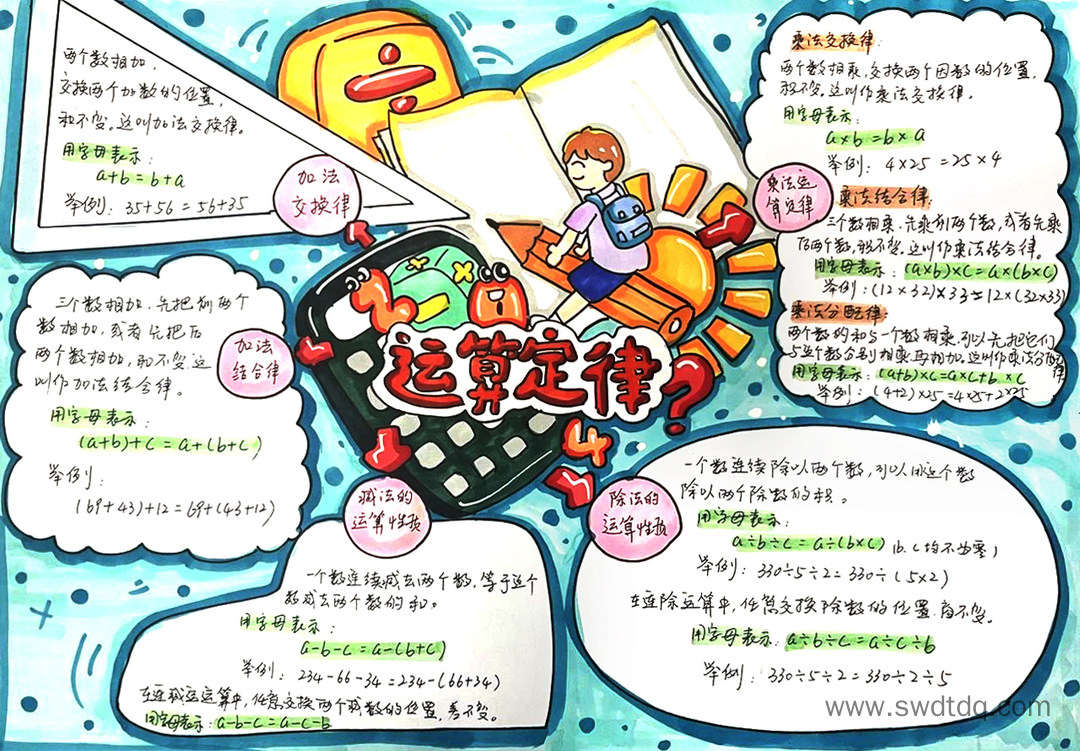 两个数相加，
交换两个加数的位置，
和不变。这叫加法交换律。
用字母表示：
a+b=b+a
举例：35+56=56+35
加法
交换律
三个数相加，先把前两个
数相加，或者先把后
两个数相加，和不变这
叫作加法结合律。
用字母表示：
(a+b)+c=a+(b+c)
举例：
(69+43)+12=69+(43+12)
加法
结合律
运算定律?
4
乘法运
算定律
乘法交换律：
两个数相乘，交换两个因数的位置，
积不变。这叫作乘法交换律。
用字母表示：
a×b=b×a
举例：4×25=25×4
乘法结合律：
三个数相乘，先乘前两个数，或者先乘
后两个数，积不变。这叫作乘法结合律。
用字母表示：(a×b)×c=a×(b×c)
举例：(12×32)×33=12×(32×33)
乘法分配律：
两个数的和与一个数相乘，可以先把它们
与这个数分别相乘再相加。这叫作乘法分配律
用字母表示：(a+b)×c=a×c+b×c
举例：(4+2)×25=4×25+2×25
减法的
运算性质
一个数连续减去两个数，等于这个
数减去两个数的和。
用字母表示：
a-b-c=a-(b+c)
举例：234-66-34=234-(66+34)
在连减运运算中，任意交换两个减数的位置，差不变。
用字母表示：a-b-c=a-c-b
除法的
运算性质
一个数连续除以两个数，可以用这个数
除以两个除数的积。
用字母表示：
a÷b÷c=a÷(b×c) (b.c均不为零)
举例：330÷5÷2=330÷(5×2)
在连除运算中，任意交换除数的位置，商不变。
用字母表示：a÷b÷c=a÷c÷b
举例：330÷5÷2=330÷2÷5
www.swdtdq.com